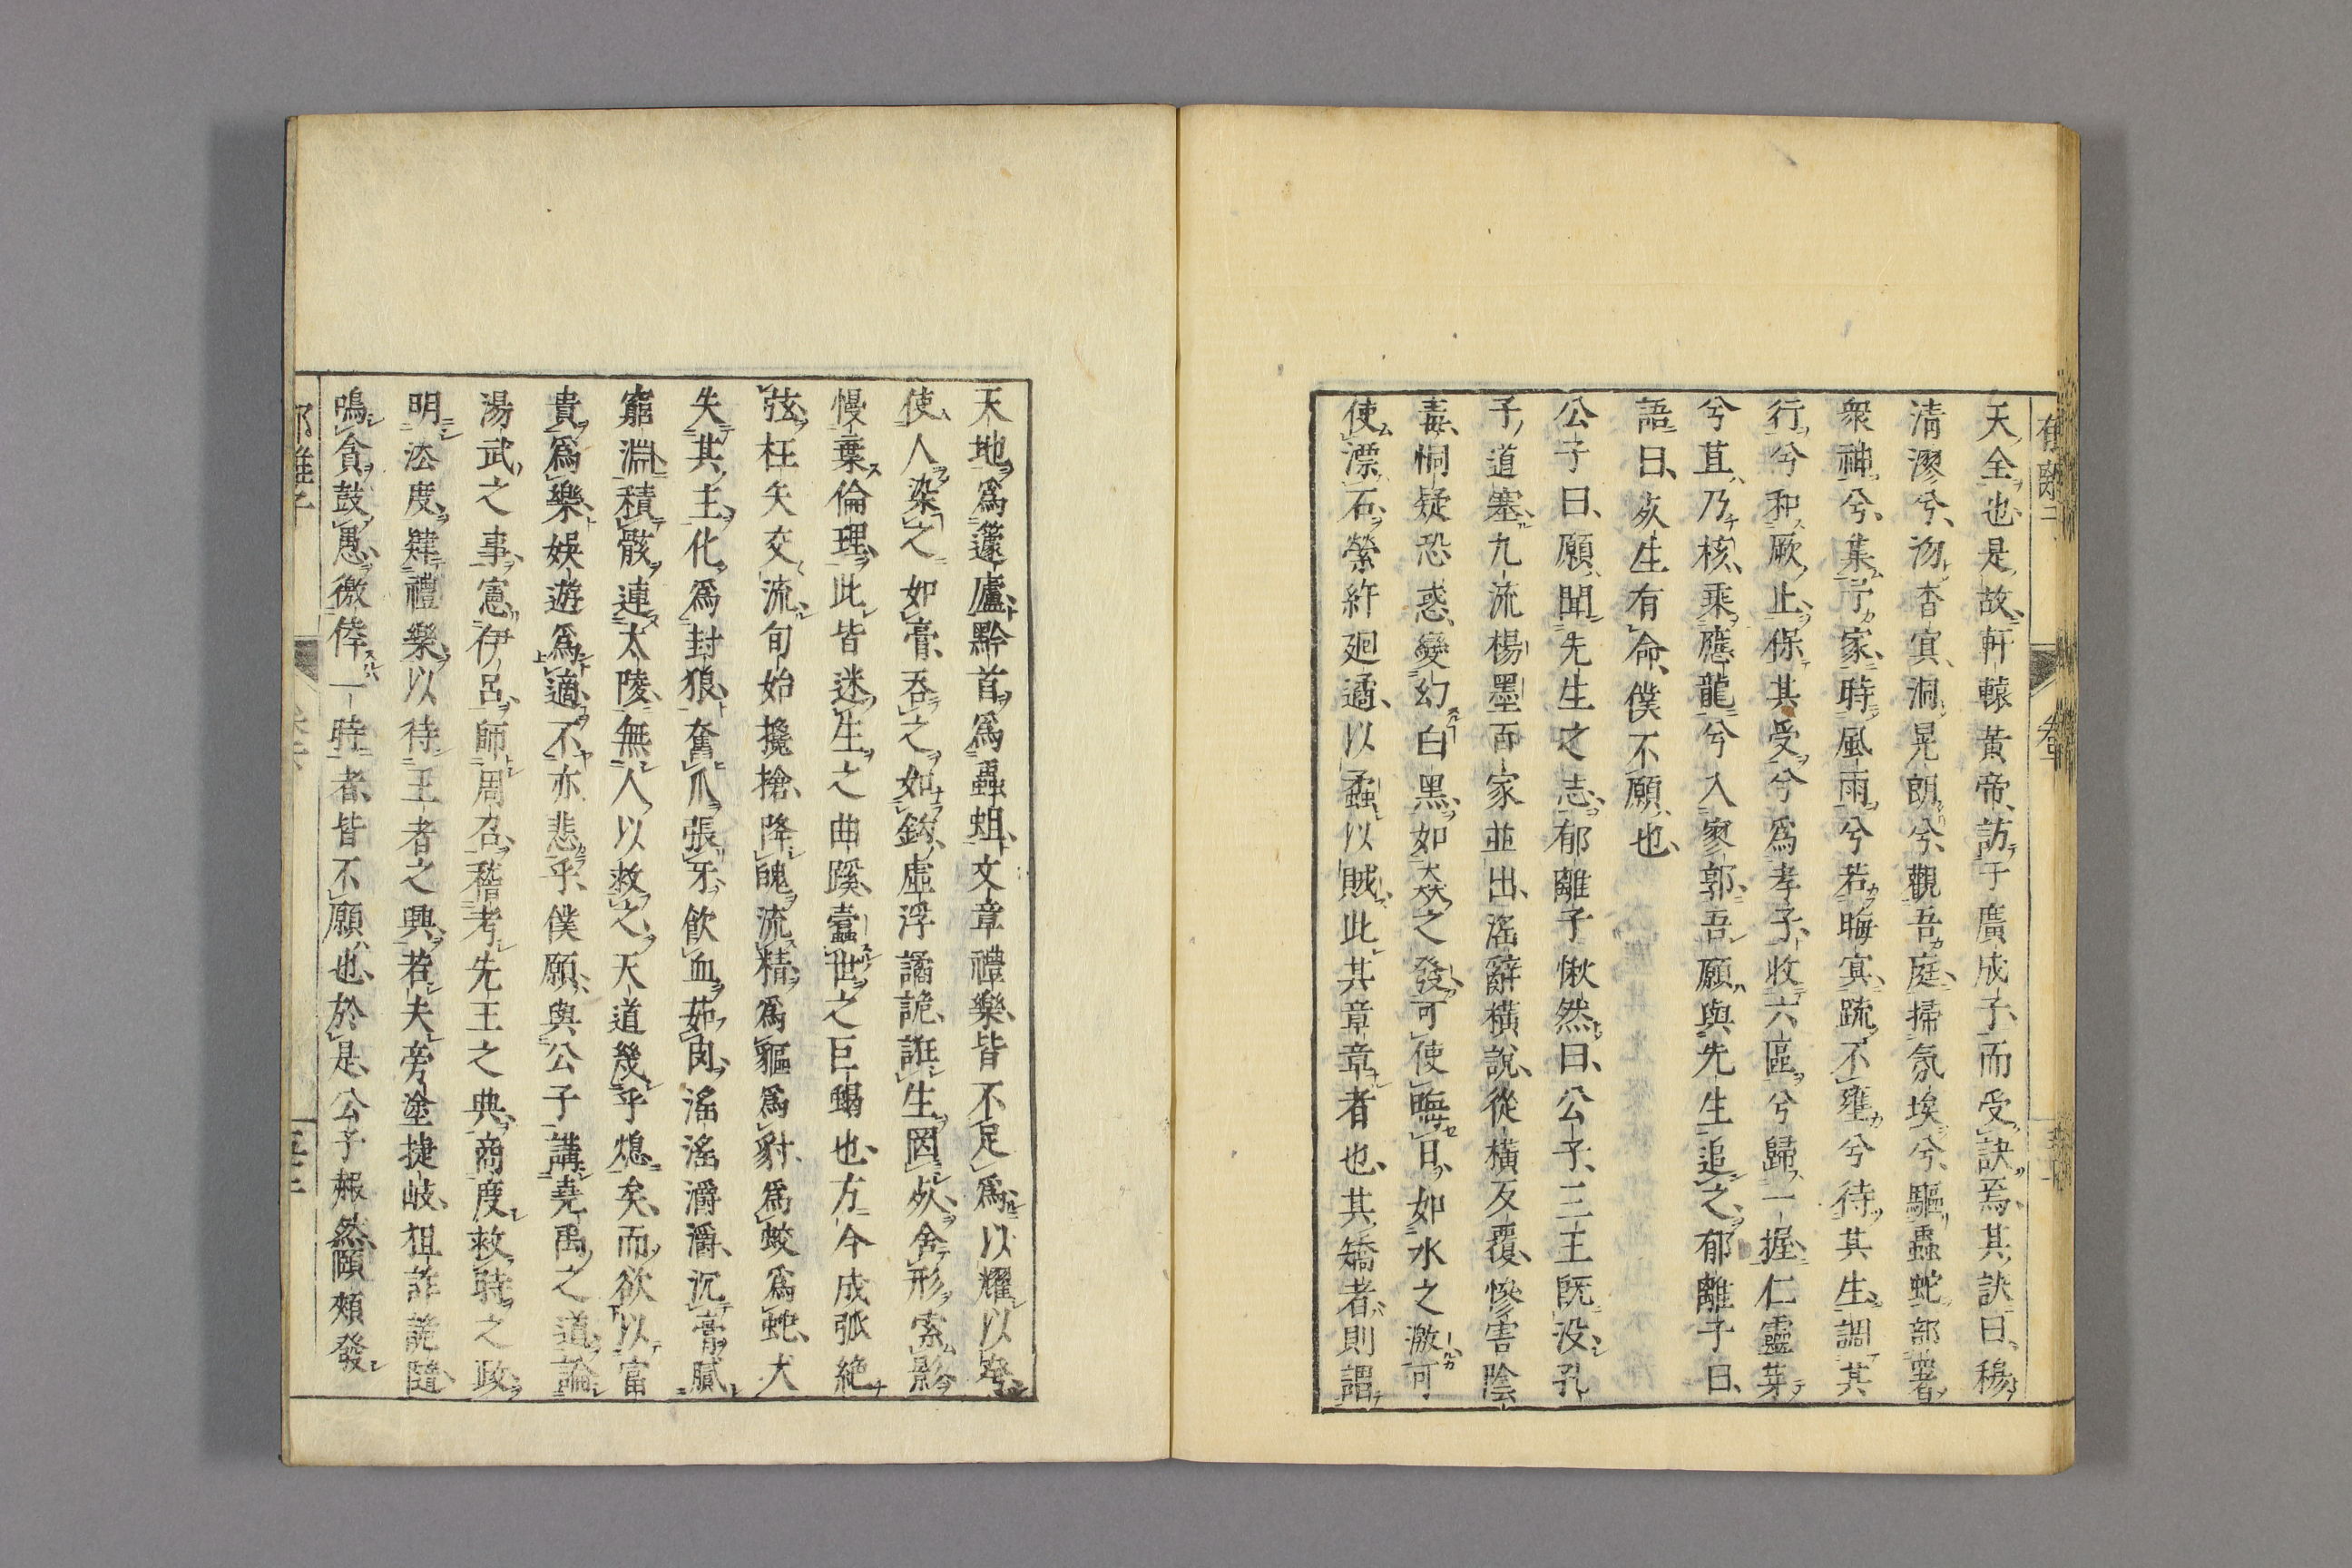 天全也是故軒轅黃帝訪于廣成子而受訣焉其訣曰穆
清漻兮沕杳冥洞晃朗兮觀吾庭掃氛埃兮驅蟲蛇部署
衆神兮集予家時風雨兮若晦冥疏不壅兮待其生調其
行兮和厥止保其受兮爲孝子收六區兮歸一握仁靈芽
兮苴乃核乘應龍兮入寥郭吾願與先生追之郁離子曰
語曰死生有命僕不願也
公子曰願聞先生之志郁離子愀然曰公子三王既没孔
子道塞九流楊墨百家並出滛辭橫說從橫反覆慘害陰
毒恫疑恐惑變幻白黑如猋之發可使晦日如水之激可
使漂石縈紆廻遹以蟊以賊此其章章者也其矯者則謂
天地爲籧廬黔首爲蝨蛆文章禮樂皆不足爲以耀以
使人染之如膏吞之如鈎虛浮譎詭誑生罔死舍形索影
慢棄倫理此皆迷生之曲蹊蠹世之巨蝎也方今成弧絕
弦枉矢交流旬始攙搶降醜流精爲貙爲豺爲蛟爲虵犬
失其主化爲封狼奮爪張牙飲血茹肉滛滛灂灂沉膏膩
窮淵積骸連太陵無人以救之天道幾乎熄矣而欲以富
貴爲樂娛遊爲適不亦悲乎僕願與公子講堯禹之道論
湯武之事憲伊呂師周召稽考先王之典商度救時之政
明法度肄禮樂以待王者之興若夫旁塗捷岐狙詐詭隨
鳴貪鼓愚徼倖一時者皆不願也於是公子赧然頤頰發